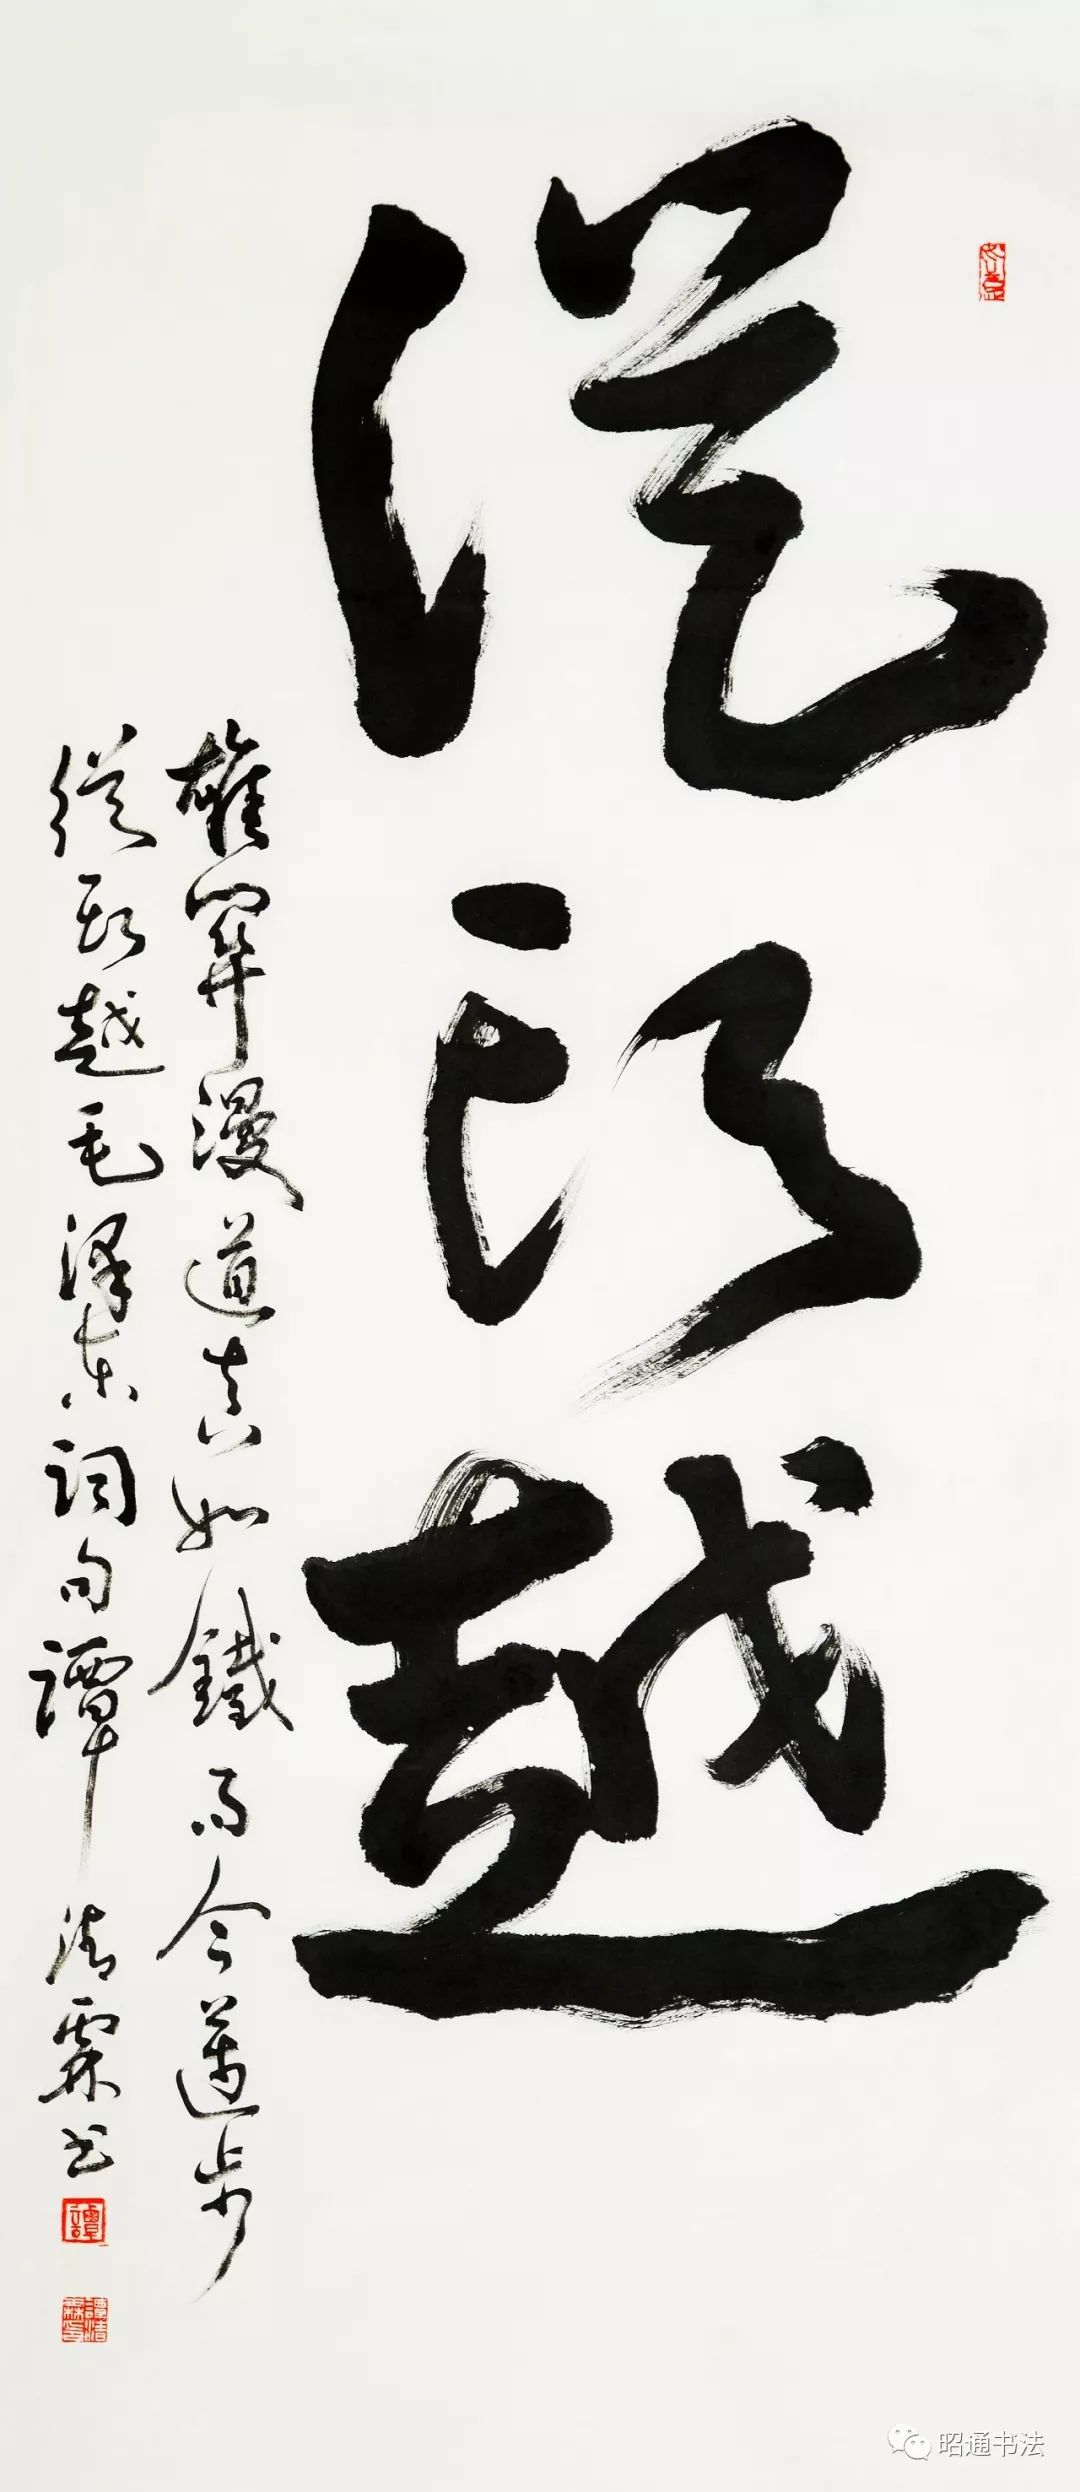 從頭越
雄關漫道真如鐵而今邁步
從頭越毛澤東詞句譚清霖书
譚
譚清霖印
昭通书法